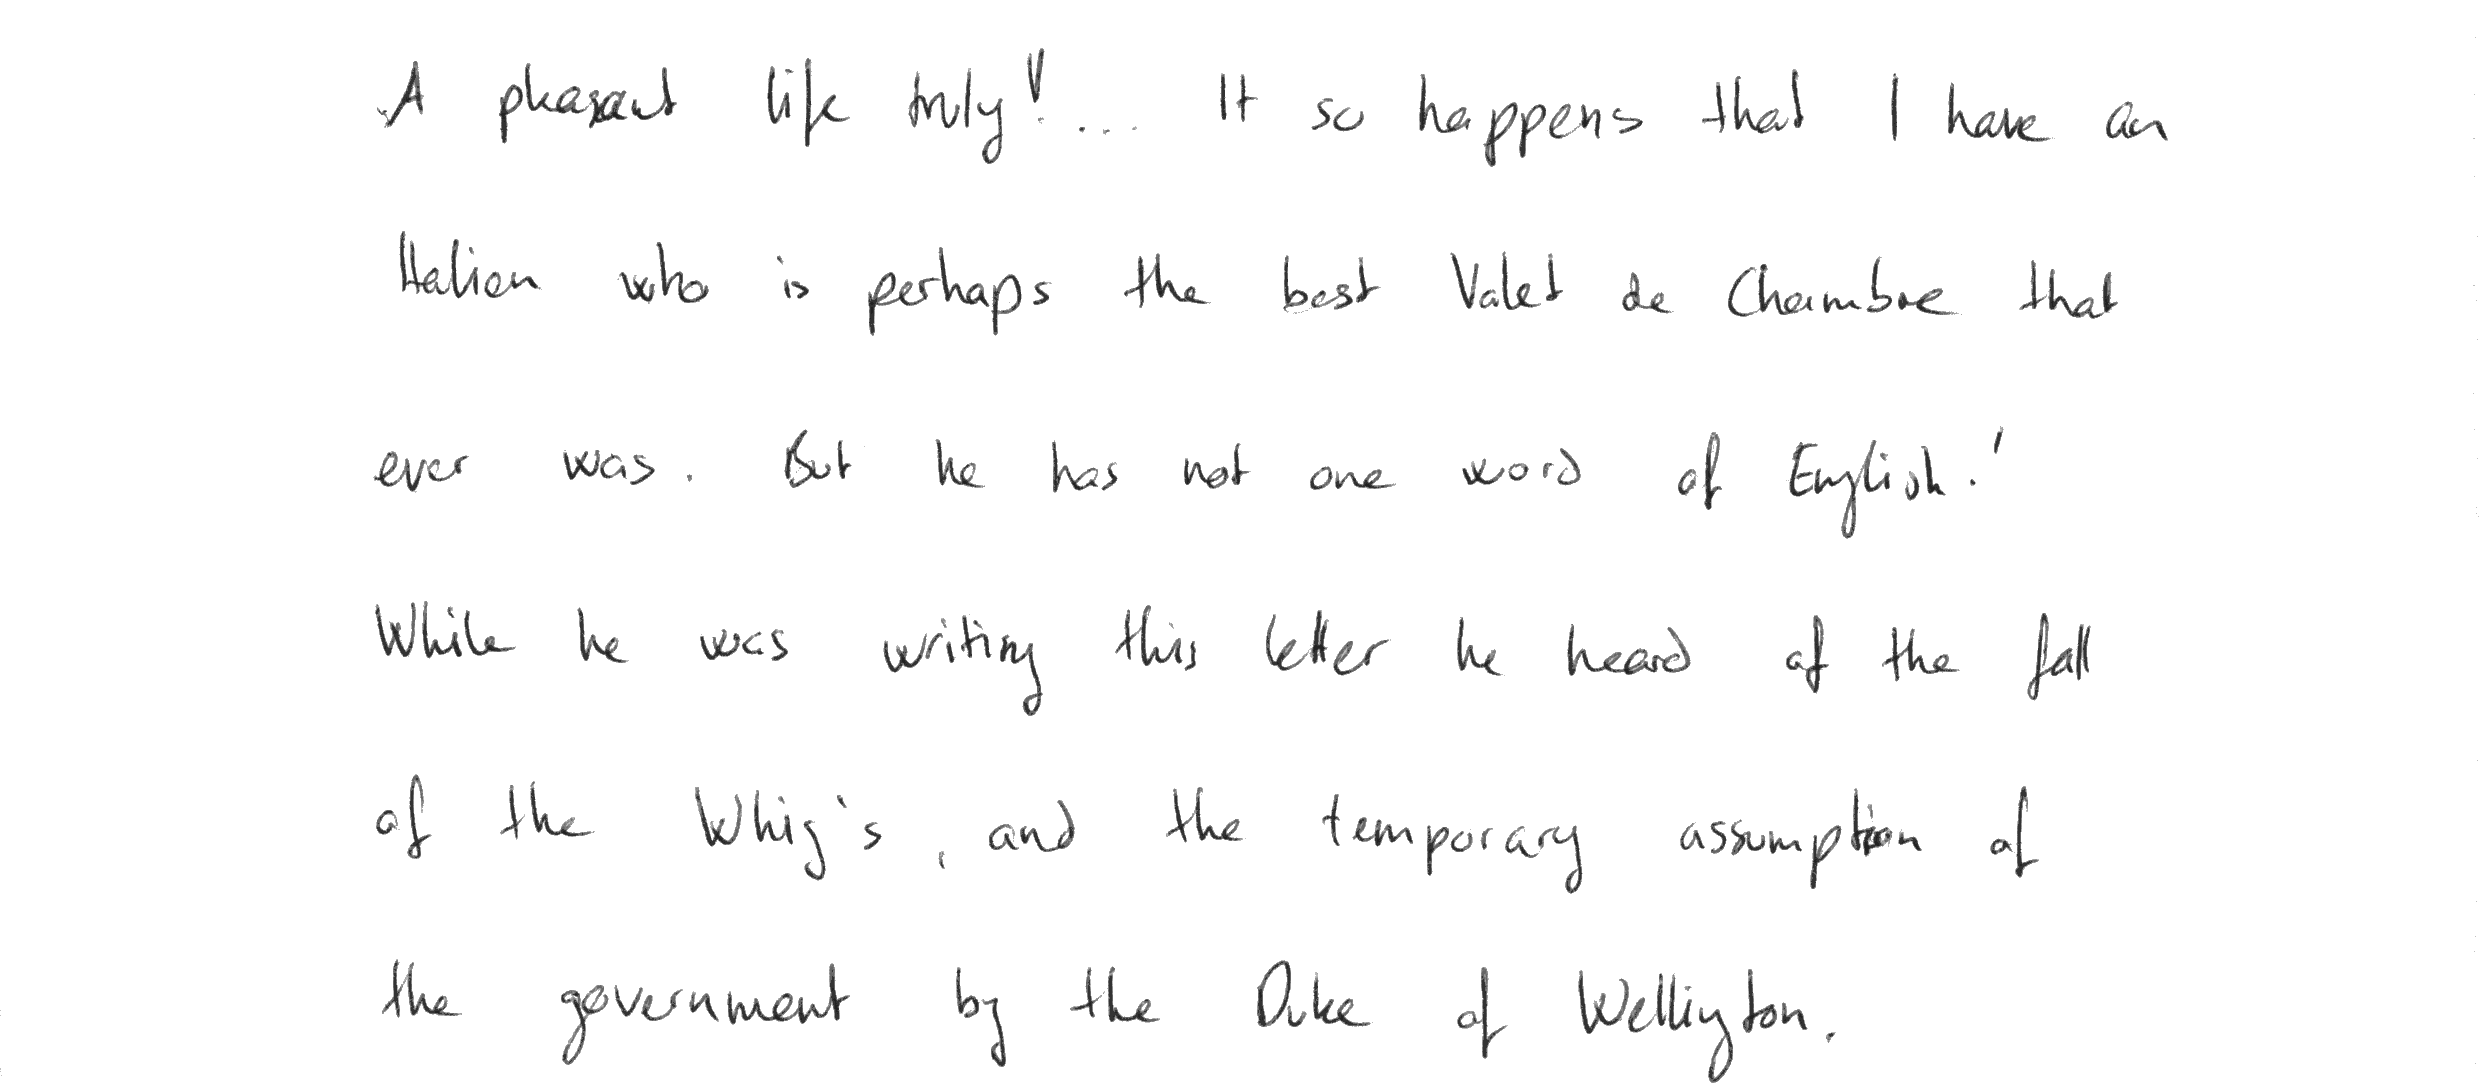 A pleasant life truly!... It so happens that I have an
Italian who is perhaps the best Valet de Chambre that
ever was. But he has not one word of English.'
While he was writing this letter he heard of the fall
of the Whig's, and the temporary assumption of
the government by the Duke of Wellington.